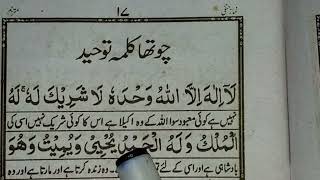 ۱۷
چوتھا کلمہ توحید
لَآ اِلٰهَ اِلَّا اللّٰهُ وَحْدَهٗ لَا شَرِيْكَ لَهٗ لَهُ
نہیں ہے کوئی معبود سوا اللہ کے وہ اکیلا ہے اس کا کوئی شریک نہیں اسی کی
الْمُلْكُ وَلَهُ الْحَمْدُ يُحْيِيْ وَيُمِيْتُ وَهُوَ
بادشاہی ہے اور اسی کے لئے وہ زندہ کرتا ہے اور مارتا ہے اور وہ